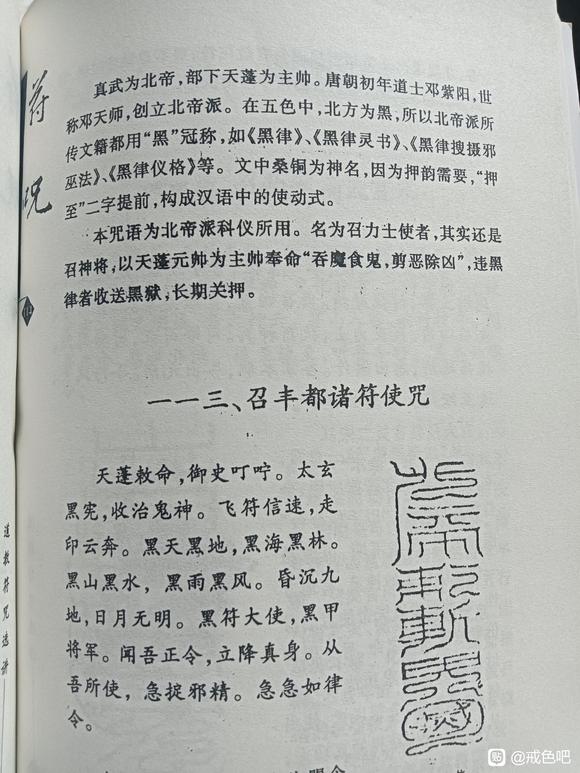 符
咒
真武为北帝，部下天蓬为主帅。唐朝初年道士邓紫阳，世
称邓天师，创立北帝派。在五色中，北方为黑，所以北帝派所
传文籍都用“黑”冠称，如《黑律》、《黑律灵书》、《黑律搜摄邪
巫法》、《黑律仪格》等。文中桑铜为神名，因为押韵需要，“押
至”二字提前，构成汉语中的使动式。
本咒语为北帝派科仪所用。名为召力士使者，其实还是
召神将，以天蓬元帅为主帅奉命“吞魔食鬼，剪恶除凶”，违黑
律者收送黑狱，长期关押。
一一三、召丰都诸符使咒
天蓬敕命，御史叮咛。太玄
黑宪，收治鬼神。飞符信速，走
印云奔。黑天黑地，黑海黑林。
黑山黑水，黑雨黑风。昏沉九
地，日月无明。黑符大使，黑甲
将军。闻吾正令，立降真身。从
吾所使，急捉邪精。急急如律
令。
道教符咒选讲
贴 @戒色吧